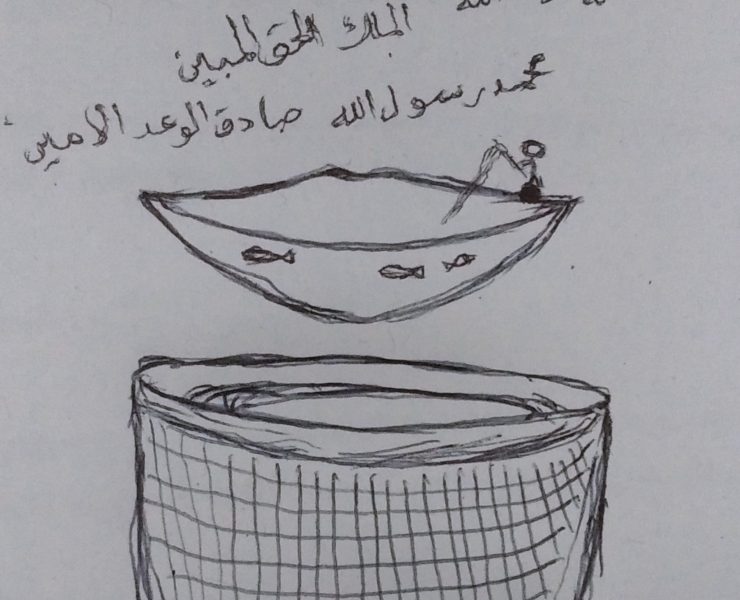 الله
الملك الحق المبين
محمد رسول الله صادق الوعد الامين